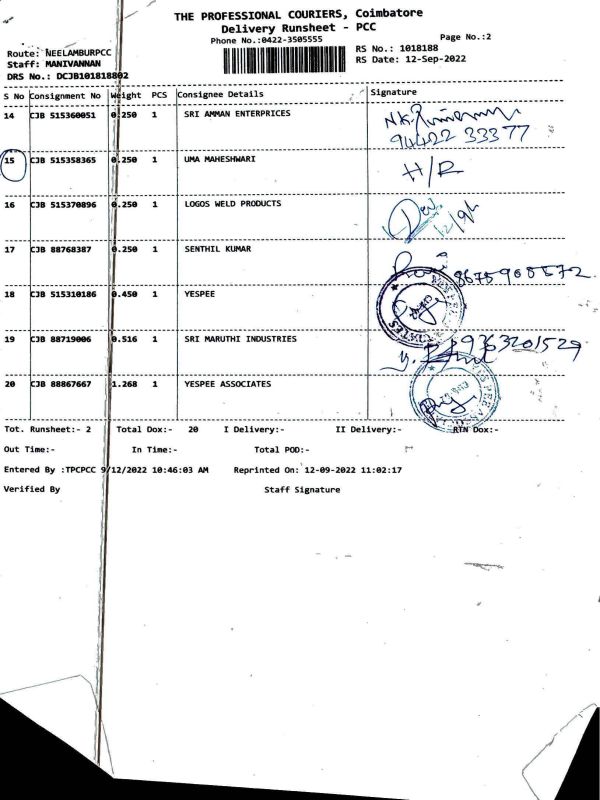 THE PROFESSIONAL COURIERS, Coimbatore
Delivery Runsheet - PCC
Phone No.:0422-3505555
Page No.:2
Route: NEELAMBURPCC
RS No.: 1018188
Staff: MANIVANNAN
RS Date: 12-Sep-2022
DRS No.: DCJB101818802
S No Consignment No Weight PCS Consignee Details Signature
14 CJB 515360051 0.250 1 SRI AMMAN ENTERPRICES
94422 33377
15 CJB 515358365 0.250 1 UMA MAHESHWARI H/R
16 CJB 515370896 0.250 1 LOGOS WELD PRODUCTS
12/9/22
17 CJB 88768387 0.250 1 SENTHIL KUMAR
18 CJB 515310186 0.450 1 YESPEE
19 CJB 88719006 0.516 1 SRI MARUTHI INDUSTRIES 9363201529
20 CJB 88867667 1.268 1 YESPEE ASSOCIATES
Tot. Runsheet:- 2 Total Dox:- 20 I Delivery:- II Delivery:- RTN Dox:-
Out Time:- In Time:- Total POD:-
Entered By :TPCPCC 9/12/2022 10:46:03 AM Reprinted On: 12-09-2022 11:02:17
Verified By Staff Signature